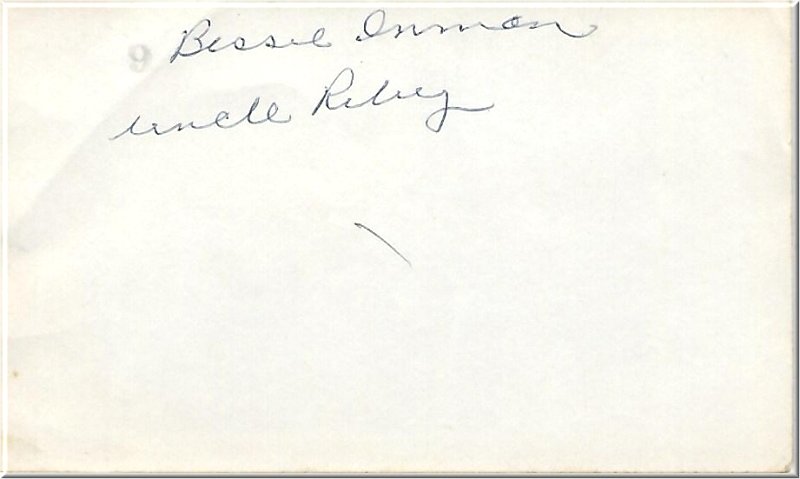 Bessie Inman
uncle Riley
9